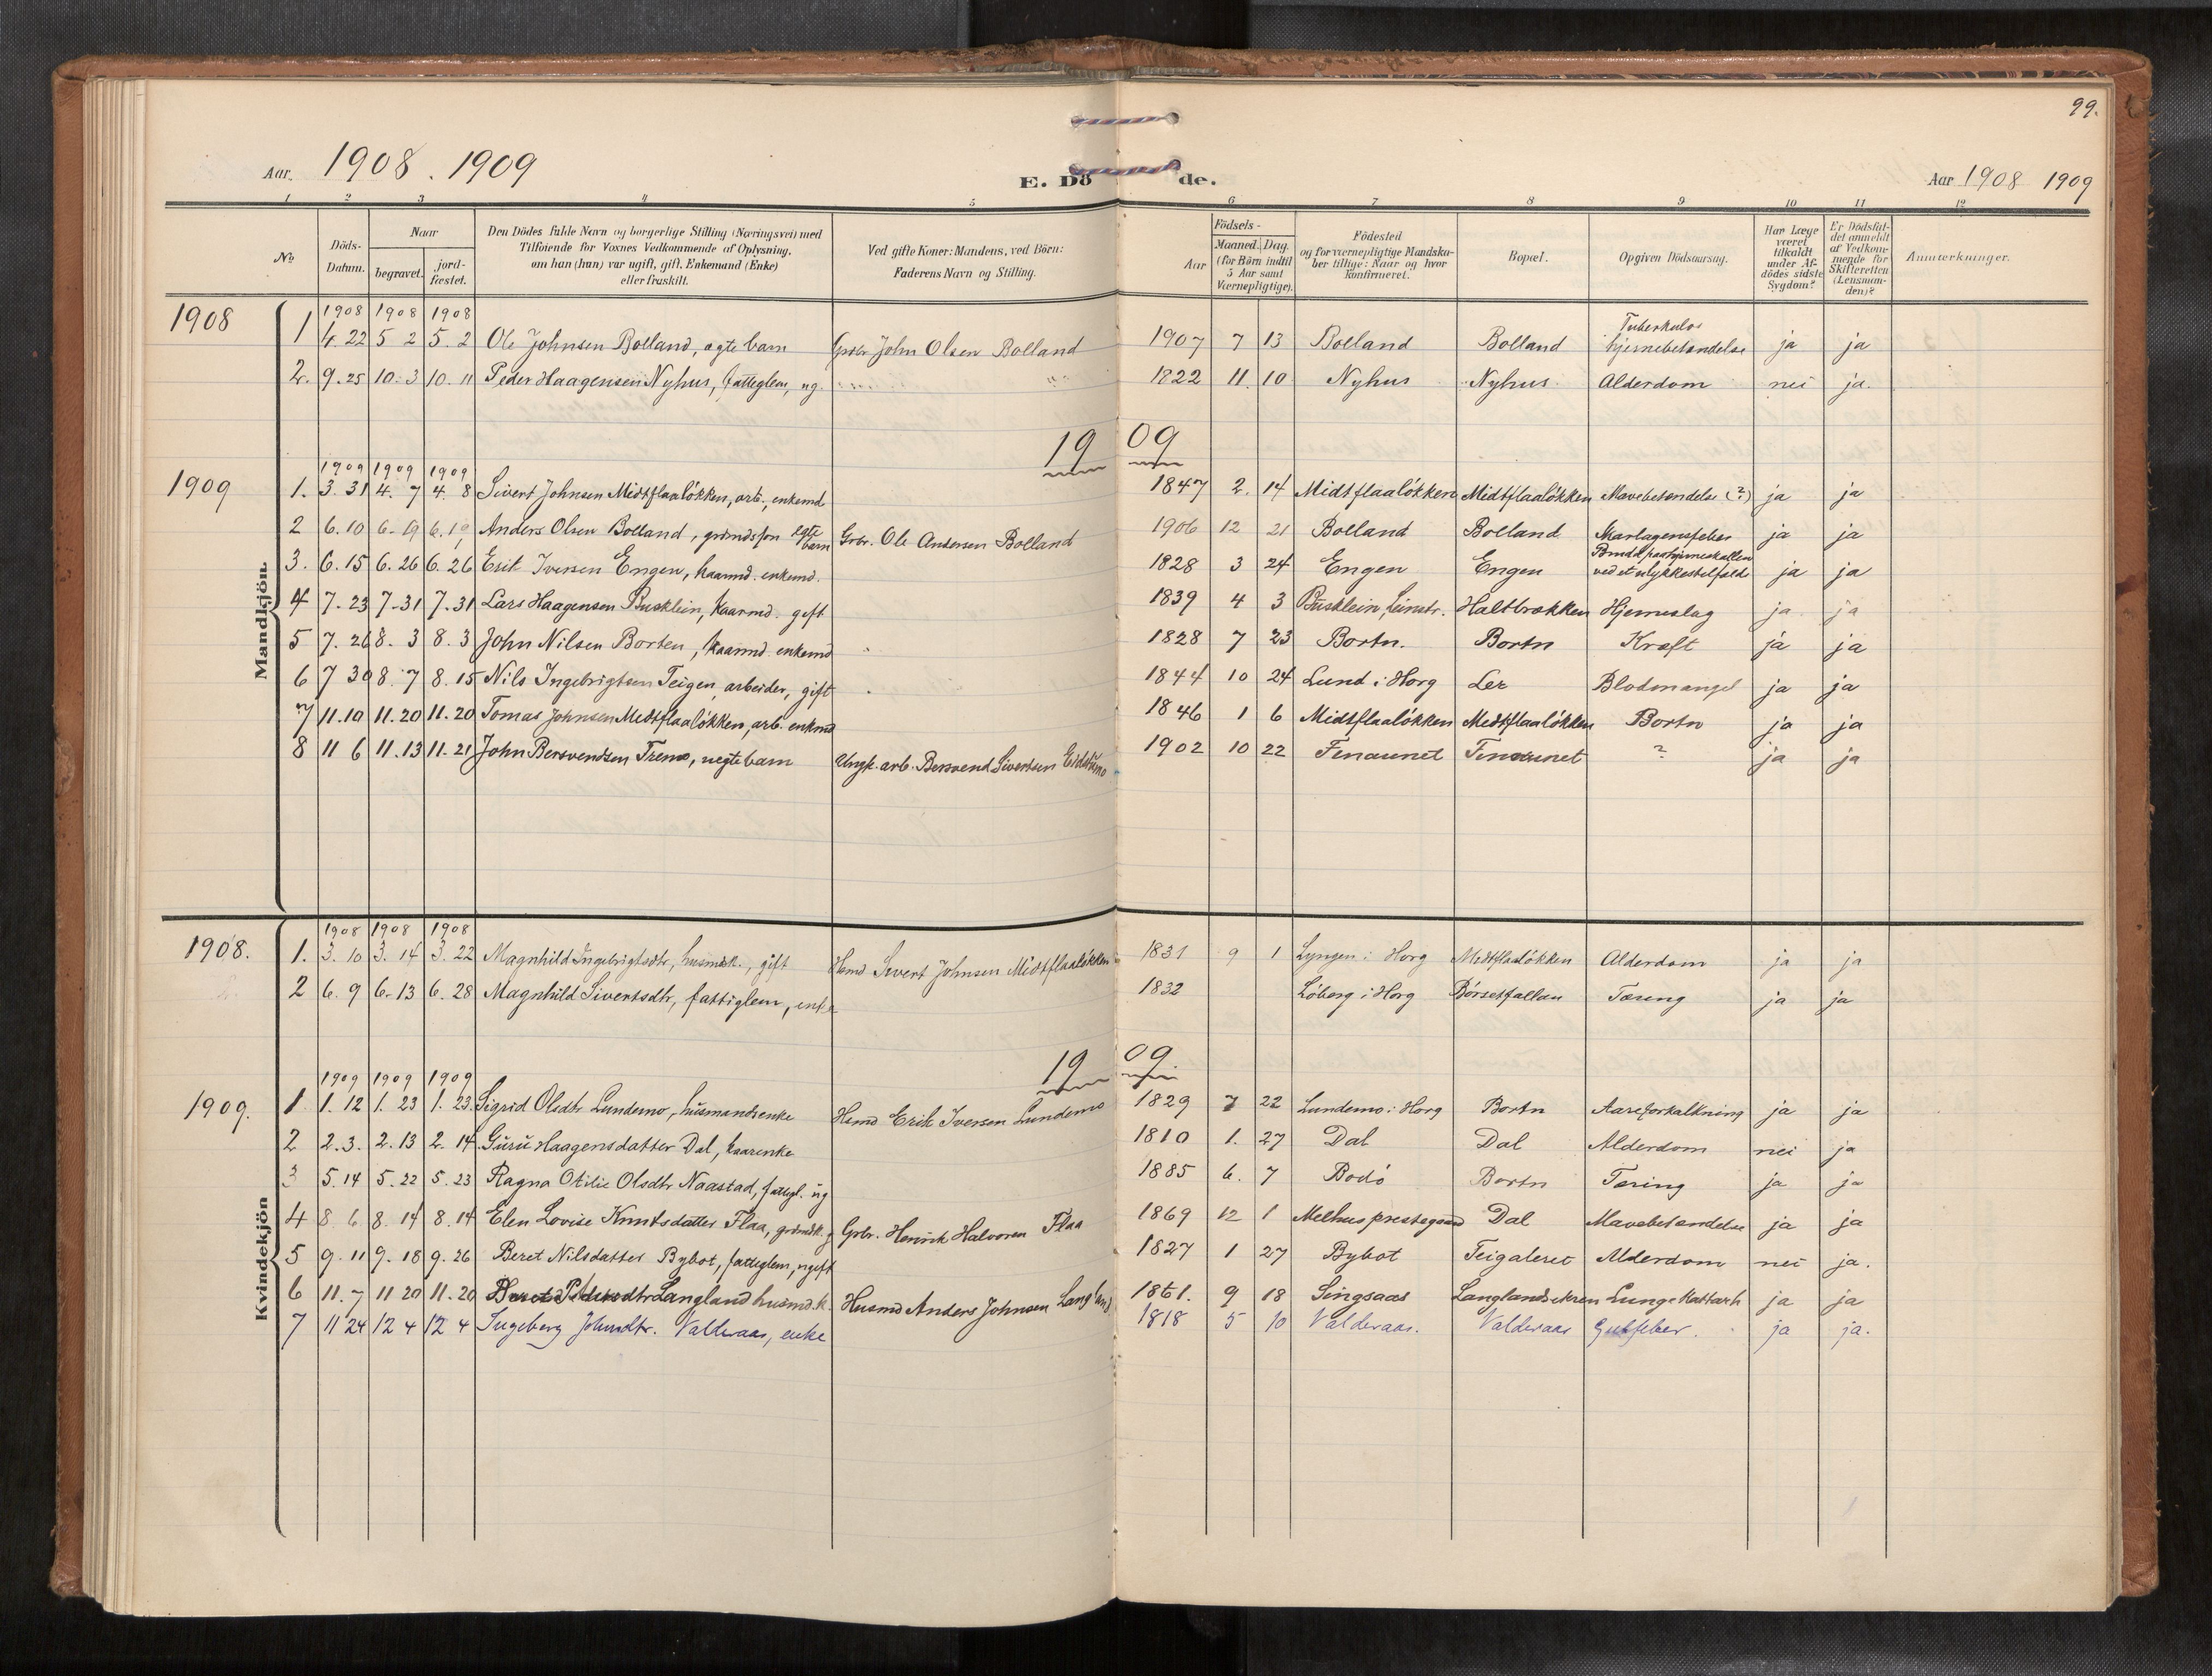 99.
Aar. 1908. 1909 E. Dö de. Aar 1908 1909
1 2 3 4 5 6 7 8 9 10 11 12
No Döds-Datum. Naar begravet. jord-fæstet. Den Dödes fulde Navn og borgerlige Stilling (Næringsvei) med Tilføiende for Voxnes Vedkommende af Oplysning, om han (hun) var ugift, gift, Enkemand (Enke) eller fraskilt. Ved gifte Koner: Mandens, ved Börn: Faderens Navn og Stilling. Födsels- Aar Maaned. Dag. (for Börn indtil 5 Aar samt Værnepligtige). Födested og for værnepligtige Mandska-ber tillige: Naar og hvor konfirmeret. Bopæl. Opgiven Dödsaarsag. Har Læge været tilkaldt under Af-dödes sidste Sygdom? Er Dödsfal-det anmeldt af Vedkom-mende for Skifteretten (Lensman-den)? Anmærkninger.
Mandkjön
1908 1908 1908 1908
1 4. 22 5 2 5. 2 Ole Johnsen Bolland, ægte barn Grbr. John Olsen Bolland 1907 7 13 Bolland Bolland Tuberkuløs hjernebetændelse ja ja
2. 9. 25 10. 3 10. 11 Peder Haagensen Nyhus, fattiglem, ug. 1822 11. 10 Nyhus Nyhus Alderdom nei ja.
19 09
1909 1909 1909 1909
1. 3. 31 4. 7 4. 8 Sivert Johnsen Midtflaaløkken, arb., enkemd 1847 2. 14 Midtflaaløkken Midtflaaløkken Mavebetændelse (?) ja ja
2 6. 10 6. 19 6. 19 Anders Olsen Bolland, ægte barn Grbr. Ole Andersen Bolland 1906 12 21 Bolland Bolland Skarlagensfeber ja ja
3. 6. 15 6. 26 6. 26 Erik Iversen Engen, kaarmd. enkemd. 1828 3 24 Engen Engen ved et ulykkestilfælde ja ja
4 7. 23 7. 31 7. 31 Lars Haagensen Busklein, kaarmd. gift 1839 4 3 Busklein, Leinstr. Haltbrækken Hjerneslag ja ja
5 7. 26 8. 3 8. 3 John Nilsen Borten, kaarmd enkemd 1828 7 23 Bortn. Bortn Kræft ja ja
6 7 30 8. 7 8. 15 Nils Ingebrigtsen Teigen arbeider, gift 1844 10 24 Lund i Horg Ler Blodmangel ja ja
7 11. 10 11. 20 11. 20 Tomas Johnsen Midtflaaløkken, arb. enkmd 1846 1 6 Midtflaaløkken Midtflaaløkken Bortn ja ja
8 11 6 11. 13 11. 21 John Bersvendsen Fremo, uegte barn Ungk. arb. Bersvend Sivertsen Eidstumo 1902 10 22 Finaunet Finaunet ? ja ja
Kvindekjön
1908. 1908 1908 1908
1. 3. 10 3. 14 3. 22 Magnhild Ingebrigtsdtr, husmdk., gift Hsmd Sivert Johnsen Midtflaaløkken 1831 9 1 Lyngen i Horg Midtflaaløkken Alderdom ja ja
2 6. 9 6. 13 6. 28 Magnhild Sivertsdtr, fattiglem, enke 1832 Løberg i Horg Børsetfallan Tæring ja ja
19 09
1909. 1909 1909 1909
1 1. 12 1. 23 1. 23 Sigrid Olsdtr Lundemo, husmandsenke Hsmd Erik Iversen Lundemo 1829 7 22 Lundemo i Horg Bortn Aareforkalkning ja ja
2 2. 3. 2. 13 2. 14 Guru Haagensdatter Dal, kaarenke 1810 1. 27 Dal Dal Alderdom nei ja
3 5. 14 5. 22 5. 23 Ragna Otilie Olsdtr Naastad, fattigl. ug 1885 6. 7 Bodø Bortn Tæring ja ja
4 8. 6 8. 14 8. 14 Elen Lovise Knutsdatter Flaa, grdmdk. g Grbr. Henrik Halvorsen Flaa 1869 12 1 Melhus prestegaard Dal Mavebetændelse ja ja
5 9. 11 9. 18 9. 26 Beret Nilsdatter Bybot, fattiglem, ugift 1827 1 27 Bybot Teigaleret Alderdom nei ja.
6 11. 7 11 20 11. 20 Beret Pedersdtr Langland husmd.k. Husmd Anders Johnsen Langland 1861. 9 18 Singsaas Langlandsekren Lungekattarh ja ja
7 11 24 12 4 12 4 Ingeborg Johnsdtr. Valderaas, enke 1818 5 10 Valderaas. Valderaas Gulfeber. ja ja.